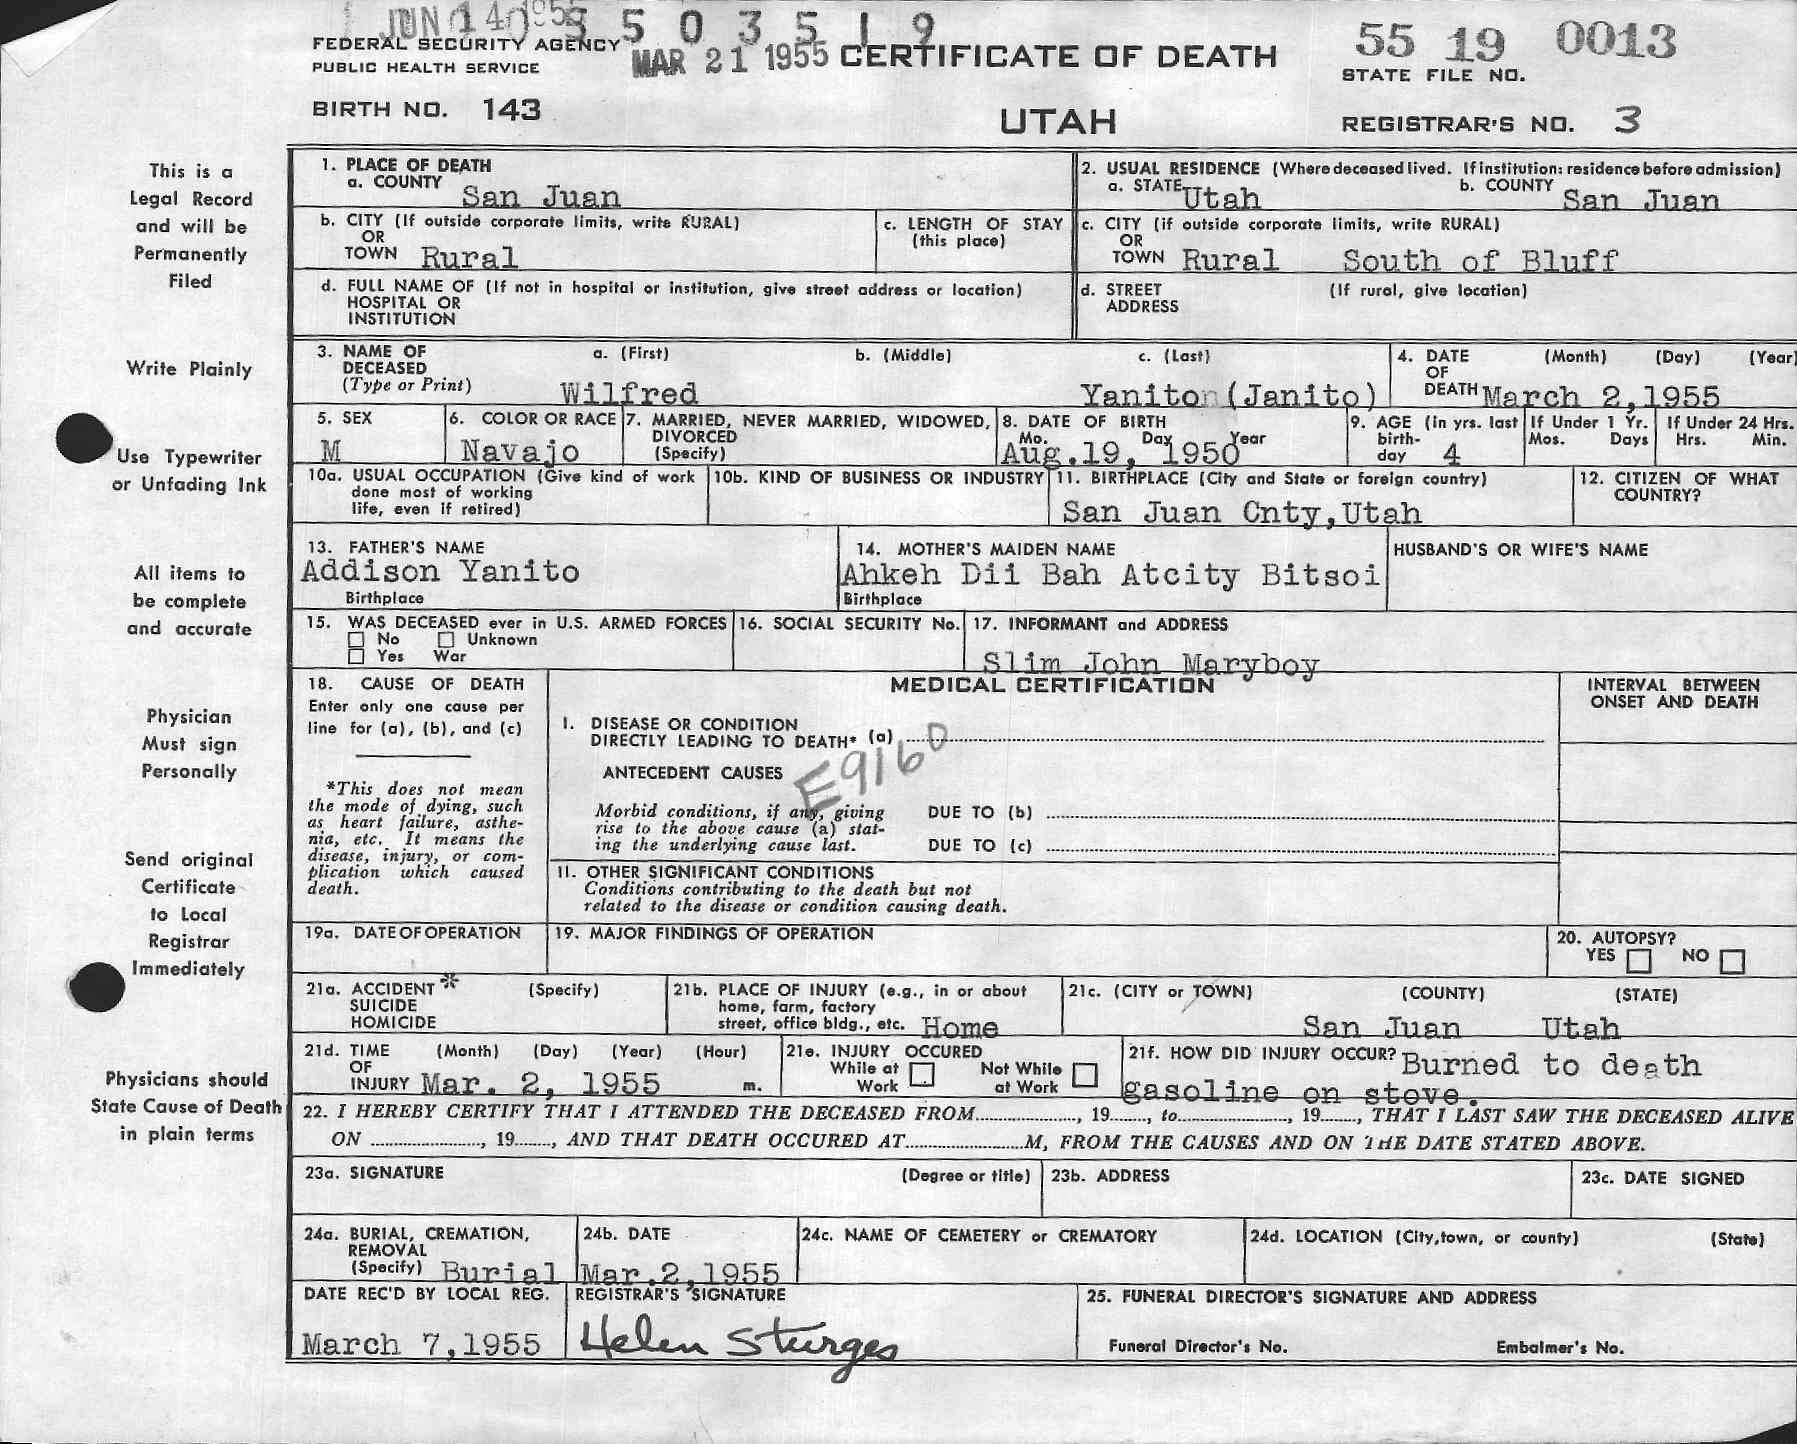 JUN 14 1955
5 5 0 3 5 1 9
FEDERAL SECURITY AGENCY
PUBLIC HEALTH SERVICE
MAR 21 1955
CERTIFICATE OF DEATH
55 19 0013
STATE FILE NO.
BIRTH NO. 143
UTAH
REGISTRAR'S NO. 3
This is a
Legal Record
and will be
Permanently
Filed
Write Plainly
Use Typewriter
or Unfading Ink
All items to
be complete
and accurate
Physician
Must sign
Personally
Send original
Certificate
to Local
Registrar
Immediately
Physicians should
State Cause of Death
in plain terms
1. PLACE OF DEATH
a. COUNTY San Juan
2. USUAL RESIDENCE (Where deceased lived. If institution: residence before admission)
a. STATE Utah b. COUNTY San Juan
b. CITY (If outside corporate limits, write RURAL)
OR
TOWN Rural
c. LENGTH OF STAY
(this place)
c. CITY (if outside corporate limits, write RURAL)
OR
TOWN Rural South of Bluff
d. FULL NAME OF (If not in hospital or institution, give street address or location)
HOSPITAL OR
INSTITUTION
d. STREET (If rural, give location)
ADDRESS
3. NAME OF a. (First) b. (Middle) c. (Last)
DECEASED
(Type or Print) Wilfred Yanito (Janito)
4. DATE (Month) (Day) (Year)
OF
DEATH March 2,1955
5. SEX
M
6. COLOR OR RACE
Navajo
7. MARRIED, NEVER MARRIED, WIDOWED,
DIVORCED
(Specify)
8. DATE OF BIRTH
Mo. Day Year
Aug.19, 1950
9. AGE (in yrs. last
birth-
day 4
If Under 1 Yr.
Mos. Days
If Under 24 Hrs.
Hrs. Min.
10a. USUAL OCCUPATION (Give kind of work
done most of working
life, even if retired)
10b. KIND OF BUSINESS OR INDUSTRY
11. BIRTHPLACE (City and State or foreign country)
San Juan Cnty,Utah
12. CITIZEN OF WHAT
COUNTRY?
13. FATHER'S NAME
Addison Yanito
Birthplace
14. MOTHER'S MAIDEN NAME
Ahkeh Dii Bah Atcity Bitsoi
Birthplace
HUSBAND'S OR WIFE'S NAME
15. WAS DECEASED ever in U.S. ARMED FORCES
No Unknown
Yes War
16. SOCIAL SECURITY No.
17. INFORMANT and ADDRESS
Slim John Maryboy
18. CAUSE OF DEATH
Enter only one cause per
line for (a), (b), and (c)
*This does not mean
the mode of dying, such
as heart failure, asthe-
nia, etc. It means the
disease, injury, or com-
plication which caused
death.
MEDICAL CERTIFICATION
I. DISEASE OR CONDITION
DIRECTLY LEADING TO DEATH* (a)
ANTECEDENT CAUSES
E9160
Morbid conditions, if any, giving
rise to the above cause (a) stat-
ing the underlying cause last.
DUE TO (b)
DUE TO (c)
II. OTHER SIGNIFICANT CONDITIONS
Conditions contributing to the death but not
related to the disease or condition causing death.
INTERVAL BETWEEN
ONSET AND DEATH
19a. DATE OF OPERATION
19. MAJOR FINDINGS OF OPERATION
20. AUTOPSY?
YES NO
21a. ACCIDENT * (Specify)
SUICIDE
HOMICIDE
21b. PLACE OF INJURY (e.g., in or about
home, farm, factory
street, office bldg., etc. Home
21c. (CITY or TOWN) (COUNTY) (STATE)
San Juan Utah
21d. TIME (Month) (Day) (Year) (Hour)
OF
INJURY Mar. 2, 1955 m.
21e. INJURY OCCURED
While at Work Not While at Work
21f. HOW DID INJURY OCCUR? Burned to death
gasoline on stove.
22. I HEREBY CERTIFY THAT I ATTENDED THE DECEASED FROM............, 19......, to............, 19......, THAT I LAST SAW THE DECEASED ALIVE
ON ............, 19......, AND THAT DEATH OCCURED AT............M, FROM THE CAUSES AND ON THE DATE STATED ABOVE.
23a. SIGNATURE (Degree or title)
23b. ADDRESS
23c. DATE SIGNED
24a. BURIAL, CREMATION,
REMOVAL
(Specify) Burial
24b. DATE
Mar.2,1955
24c. NAME OF CEMETERY or CREMATORY
24d. LOCATION (City,town, or county) (State)
DATE REC'D BY LOCAL REG.
March 7,1955
REGISTRAR'S SIGNATURE
Helen Sturges
25. FUNERAL DIRECTOR'S SIGNATURE AND ADDRESS
Funeral Director's No. Embalmer's No.